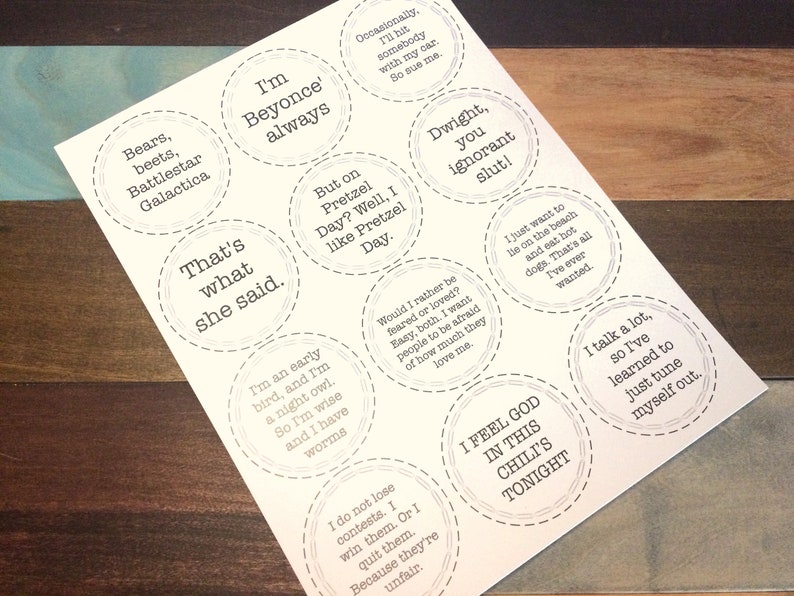 Bears,
beets,
Battlestar
Galactica
I'm
Beyonce'
always
Occasionally,
I'll hit
somebody
with my car.
So sue me.
That's
what
she said.
But on
Pretzel
Day? Well, I
like Pretzel
Day.
Dwight,
you
ignorant
slut!
I'm an early
bird, and I'm
a night owl.
So I'm wise
and I have
worms
Would I rather be
feared or loved?
Easy, both. I want
people to be afraid
of how much they
love me.
I just want to
lie on the beach
and eat hot
dogs. That's all
I've ever
wanted.
I do not lose
contests. I
win them. Or I
quit them.
Because they're
unfair.
I FEEL GOD
IN THIS
CHILI'S
TONIGHT
I talk a lot,
so I've
learned to
just tune
myself out.